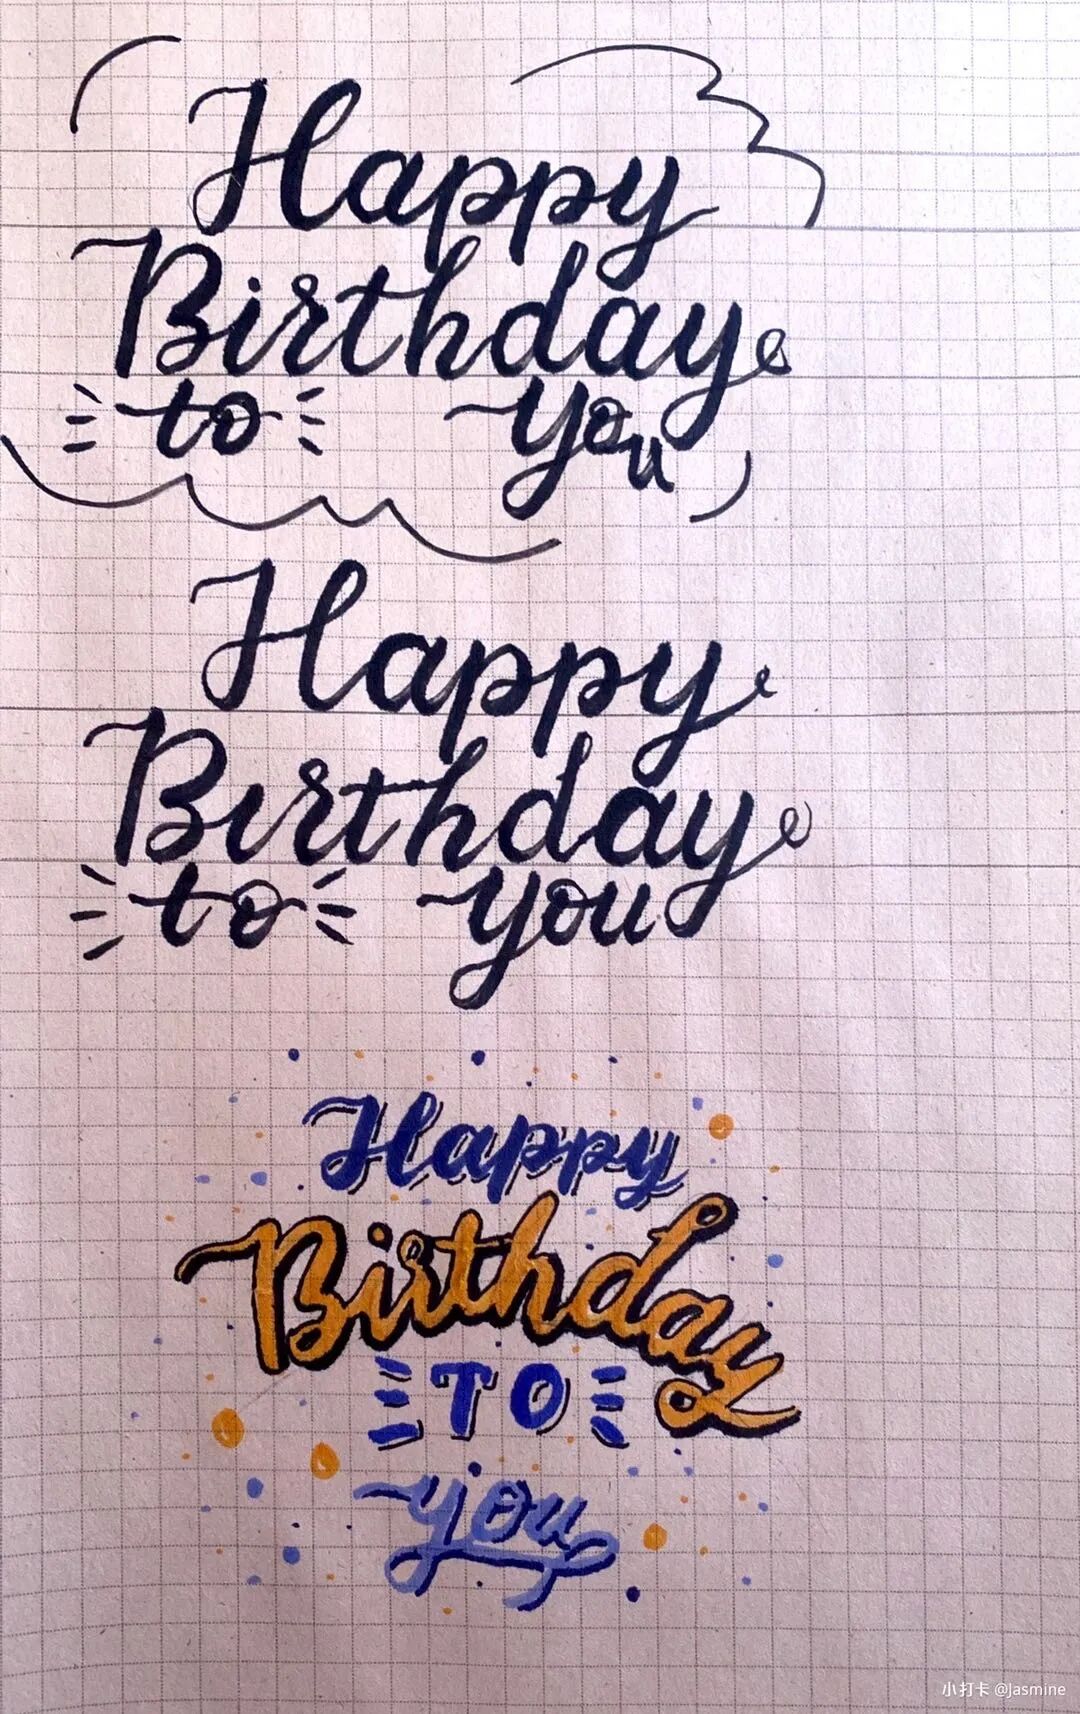 Happy
Birthday
to you
Happy
Birthday
to you
Happy
Birthday
TO
you
小打卡 @Jasmine